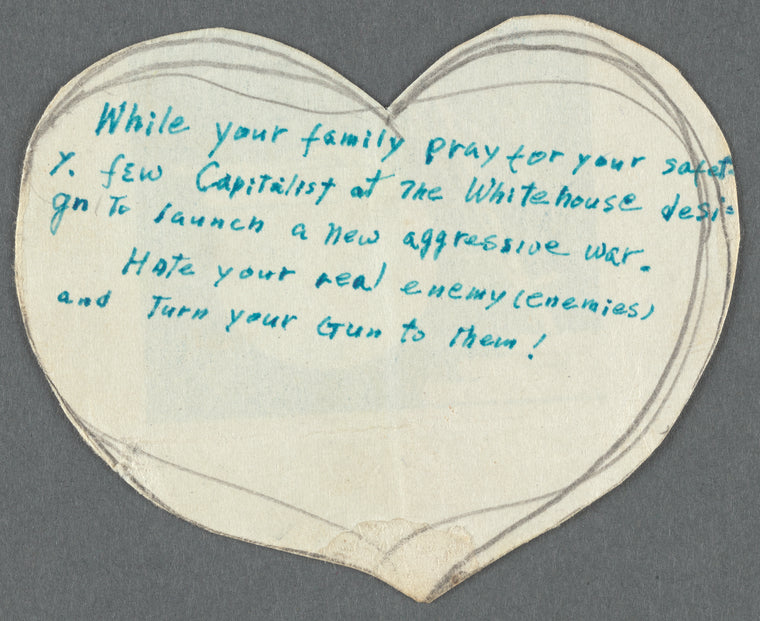 While your family pray for your safet=
y. few Capitalist at The Whitehouse desi=
gn To launch a new aggressive war.
Hate your real enemy (enemies)
and Turn your Gun to Them!